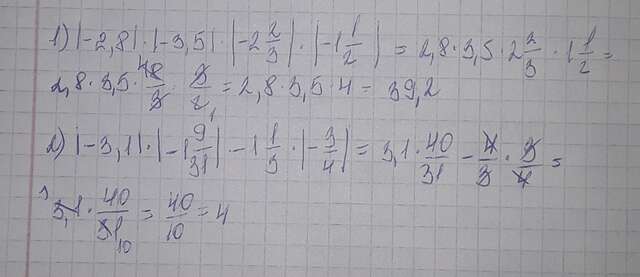 1) |-2,8| · |-3,5| · |-2 2/3| · |-1 1/2| = 2,8 · 3,5 · 2 2/3 · 1 1/2 =
2,8 · 3,5 · 8/3 · 3/2 = 2,8 · 3,5 · 4 = 39,2
2) |-3,1| · |-1 9/31| - 1 1/3 · |-3/4| = 3,1 · 40/31 - 4/3 · 3/4 =
3,1 · 40/31 = 40/10 = 4